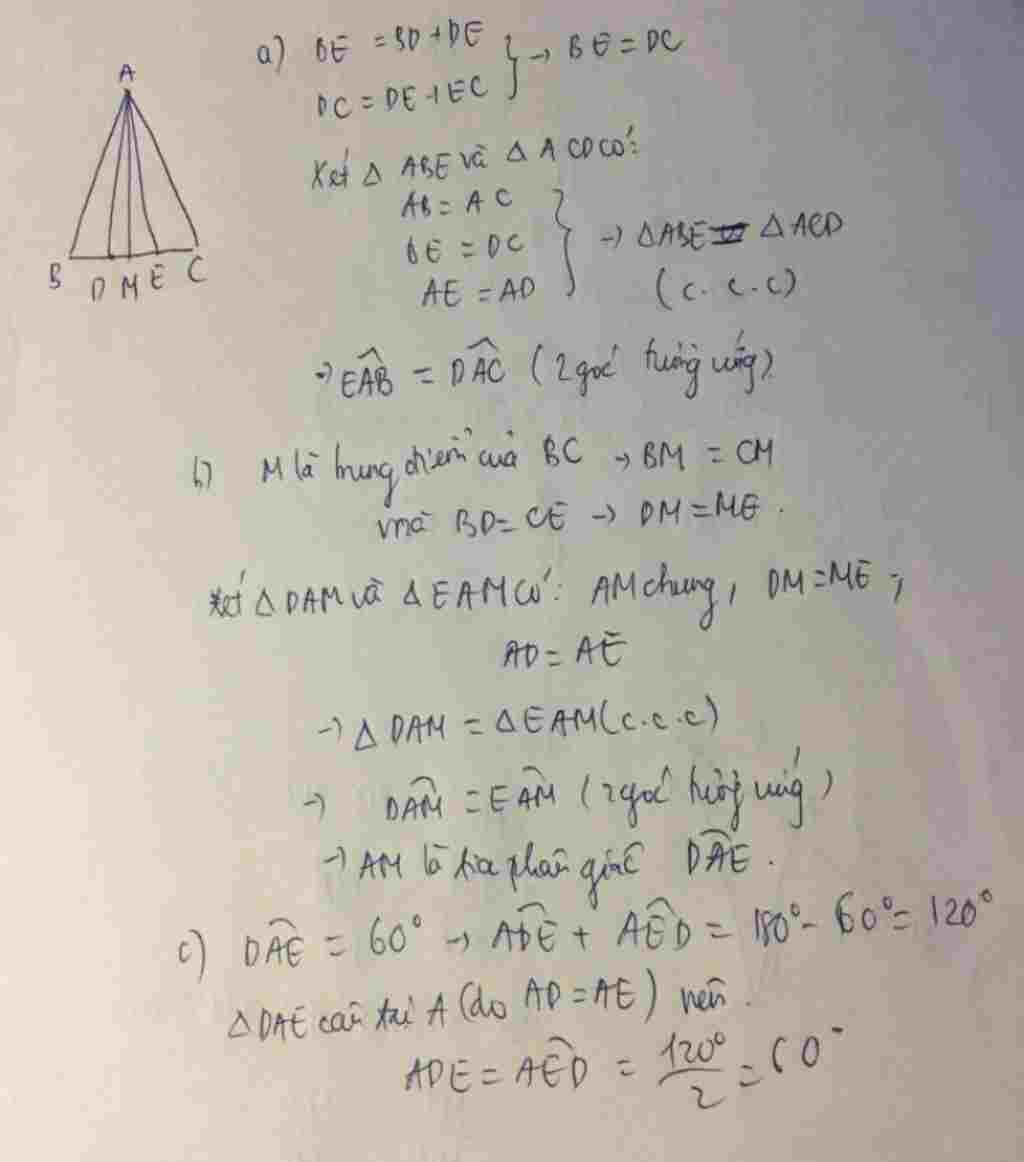 A
B D M E C
a) BE = BD + DE
DC = DE + EC } → BE = DC
Xét Δ ABE và Δ ACD có:
AB = AC
BE = DC
AE = AD } → ΔABE = ΔACD
(c.c.c)
→ EAB = DAC (2 góc tương ứng)
b) M là trung điểm của BC → BM = CM
mà BD = CE → DM = ME.
Xét Δ DAM và Δ EAM có: AM chung, DM = ME,
AD = AE
→ Δ DAM = Δ EAM (c.c.c)
→ DAM = EAM (2 góc tương ứng)
→ AM là tia phân giác DAE.
c) DAE = 60° → ADE + AED = 180° - 60° = 120°
Δ DAE cân tại A (do AD = AE) nên.
ADE = AED = 120°/2 = 60°